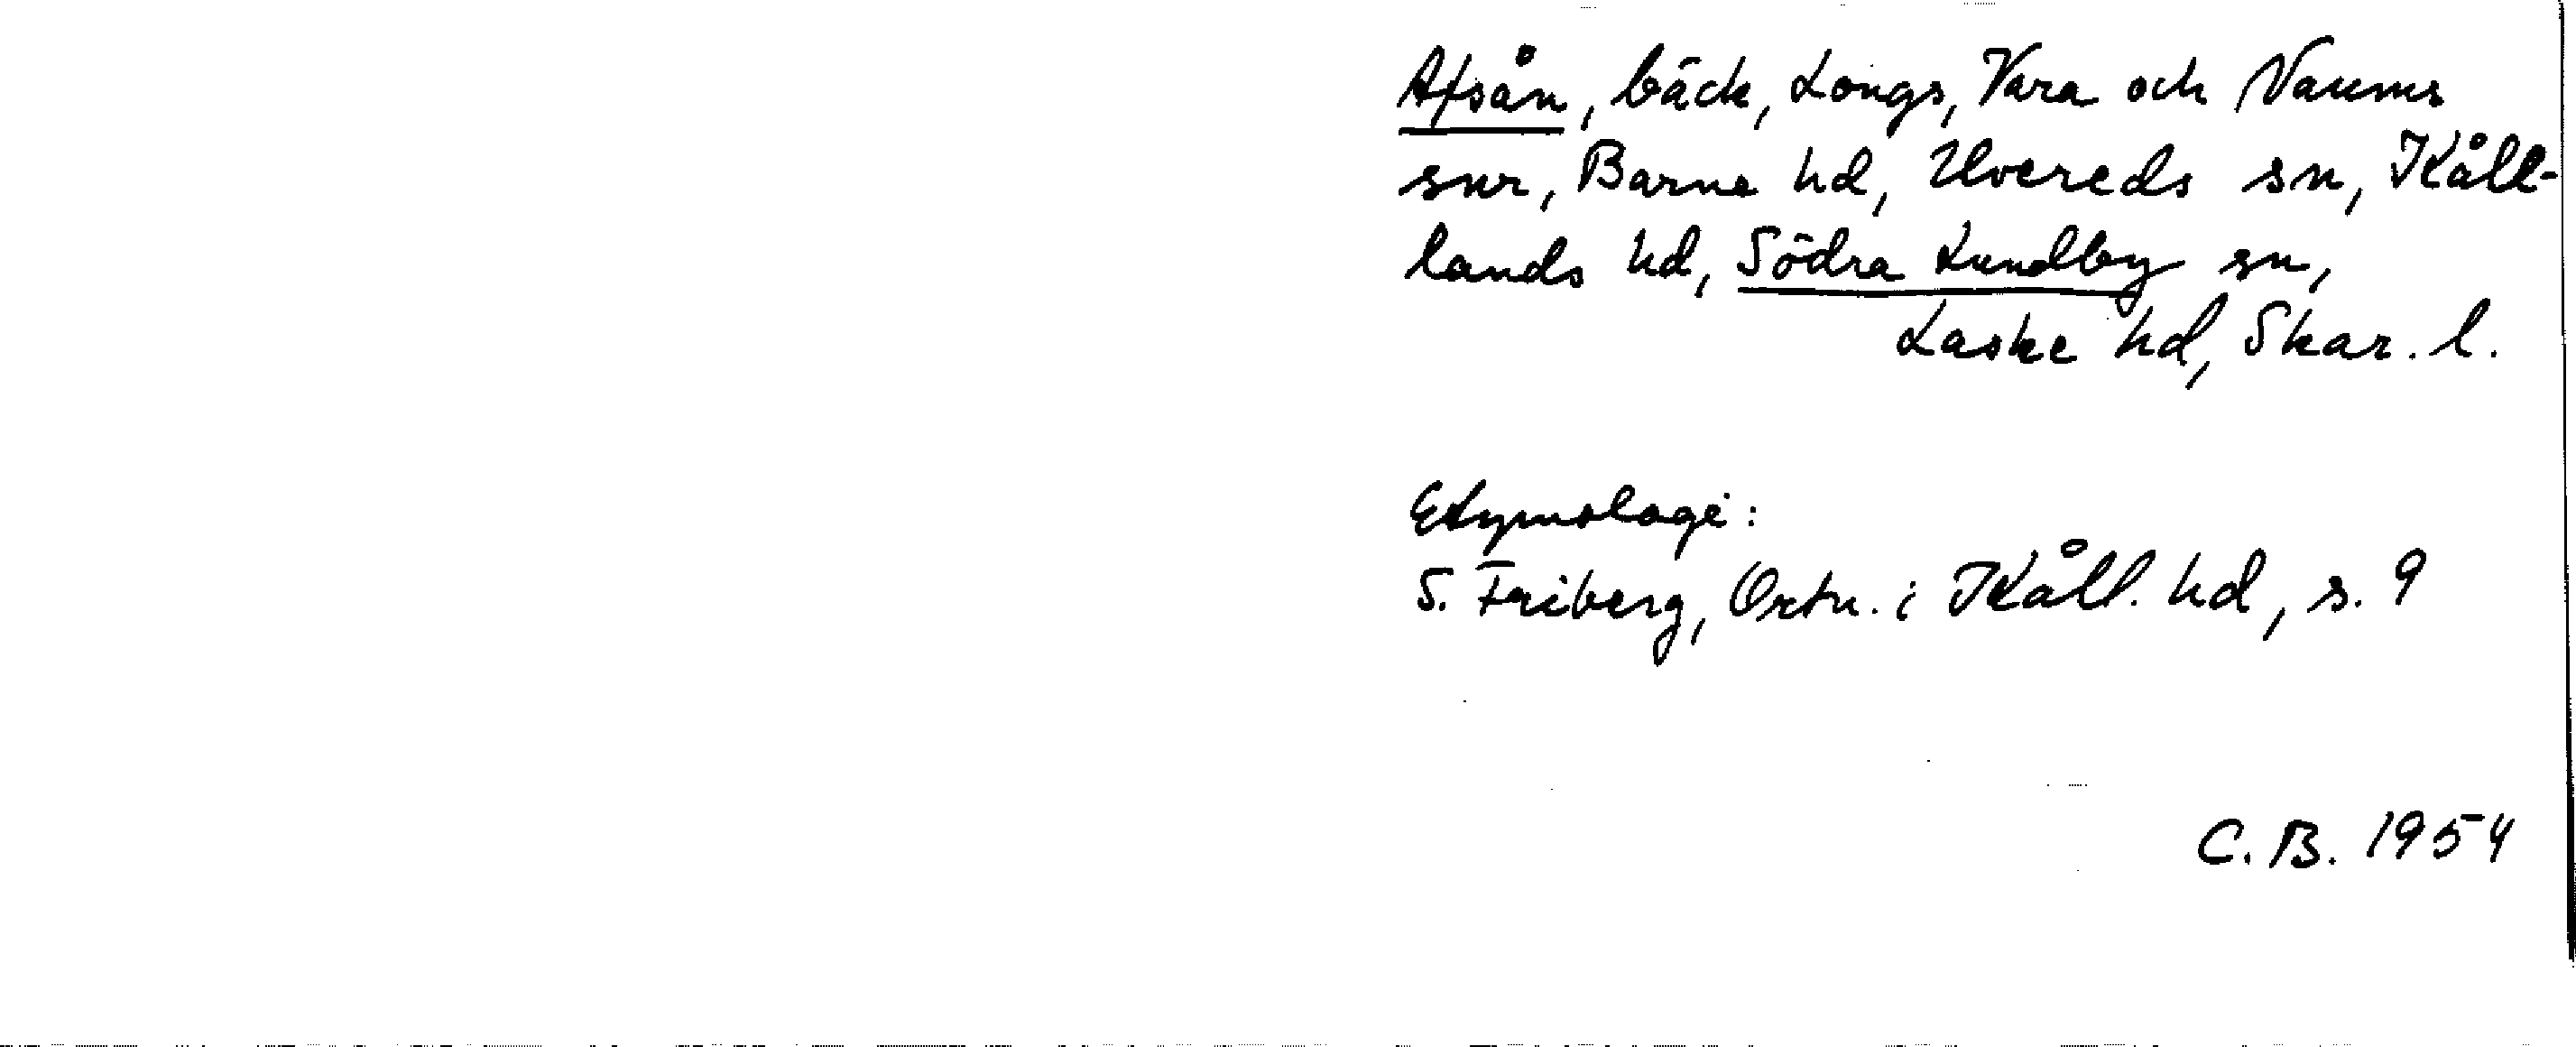 Afsån, bäck, Longs, Vara och Naums
snr, Barne hd, Hvereds sn, Kåll-
lands hd, Södra Lundby sn,
Laske hd, Skar. l.
Etymologi:
S. Friberg, Ortn. i Kåll. hd, s. 9
C. B. 1954